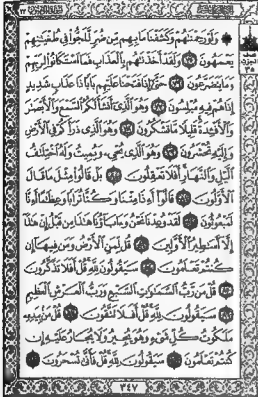 ۞ وَلَوْ رَحِمْنَٰهُمْ وَكَشَفْنَا مَا بِهِم مِّن ضُرٍّ لَّلَجُّوا۟ فِى طُغْيَٰنِهِمْ
يَعْمَهُونَ ٧٥ وَلَقَدْ أَخَذْنَٰهُم بِٱلْعَذَابِ فَمَا ٱسْتَكَانُوا۟ لِرَبِّهِمْ
وَمَا يَتَضَرَّعُونَ ٧٦ حَتَّىٰٓ إِذَا فَتَحْنَا عَلَيْهِم بَابًا ذَا عَذَابٍ شَدِيدٍ
إِذَا هُمْ فِيهِ مُبْلِسُونَ ٧٧ وَهُوَ ٱلَّذِىٓ أَنشَأَ لَكُمُ ٱلسَّمْعَ وَٱلْأَبْصَٰرَ
وَٱلْأَفْـِٔدَةَ قَلِيلًا مَّا تَشْكُرُونَ ٧٨ وَهُوَ ٱلَّذِى ذَرَأَكُمْ فِى ٱلْأَرْضِ
وَإِلَيْهِ تُحْشَرُونَ ٧٩ وَهُوَ ٱلَّذِى يُحْىِۦ وَيُمِيتُ وَلَهُ ٱخْتِلَٰفُ
ٱلَّيْلِ وَٱلنَّهَارِ أَفَلَا تَعْقِلُونَ ٨٠ بَلْ قَالُوا۟ مِثْلَ مَا قَالَ
ٱلْأَوَّلُونَ ٨١ قَالُوٓا۟ أَءِذَا مِتْنَا وَكُنَّا تُرَابًا وَعِظَٰمًا أَءِنَّا
لَمَبْعُوثُونَ ٨٢ لَقَدْ وُعِدْنَا نَحْنُ وَءَابَآؤُنَا هَٰذَا مِن قَبْلُ إِنْ هَٰذَآ
إِلَّآ أَسَٰطِيرُ ٱلْأَوَّلِينَ ٨٣ قُل لِّمَنِ ٱلْأَرْضُ وَمَن فِيهَآ إِن
كُنتُمْ تَعْلَمُونَ ٨٤ سَيَقُولُونَ لِلَّهِ قُلْ أَفَلَا تَذَكَّرُونَ
٨٥ قُلْ مَن رَّبُّ ٱلسَّمَٰوَٰتِ ٱلسَّبْعِ وَرَبُّ ٱلْعَرْشِ ٱلْعَظِيمِ
٨٦ سَيَقُولُونَ لِلَّهِ قُلْ أَفَلَا تَتَّقُونَ ٨٧ قُلْ مَنۢ بِيَدِهِۦ
مَلَكُوتُ كُلِّ شَىْءٍ وَهُوَ يُجِيرُ وَلَا يُجَارُ عَلَيْهِ إِن
كُنتُمْ تَعْلَمُونَ ٨٨ سَيَقُولُونَ لِلَّهِ قُلْ فَأَنَّىٰ تُسْحَرُونَ ٨٩
٣٤٧